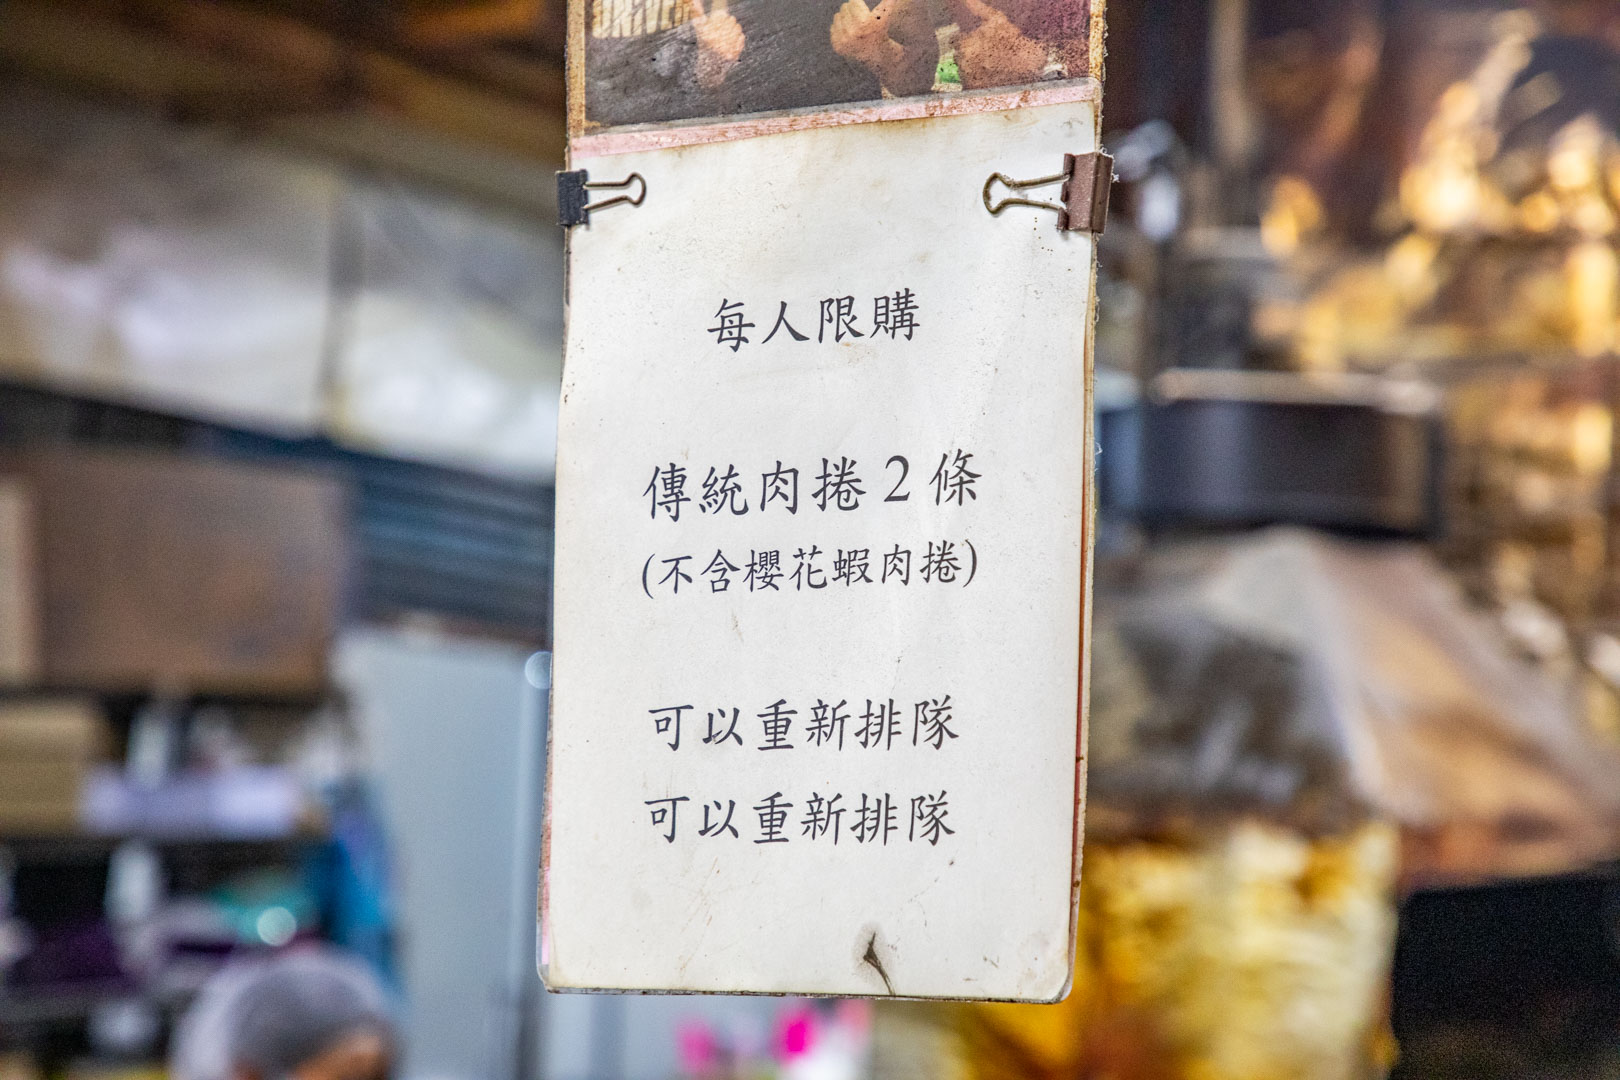 每人限購
傳統肉捲2條
(不含櫻花蝦肉捲)
可以重新排隊
可以重新排隊